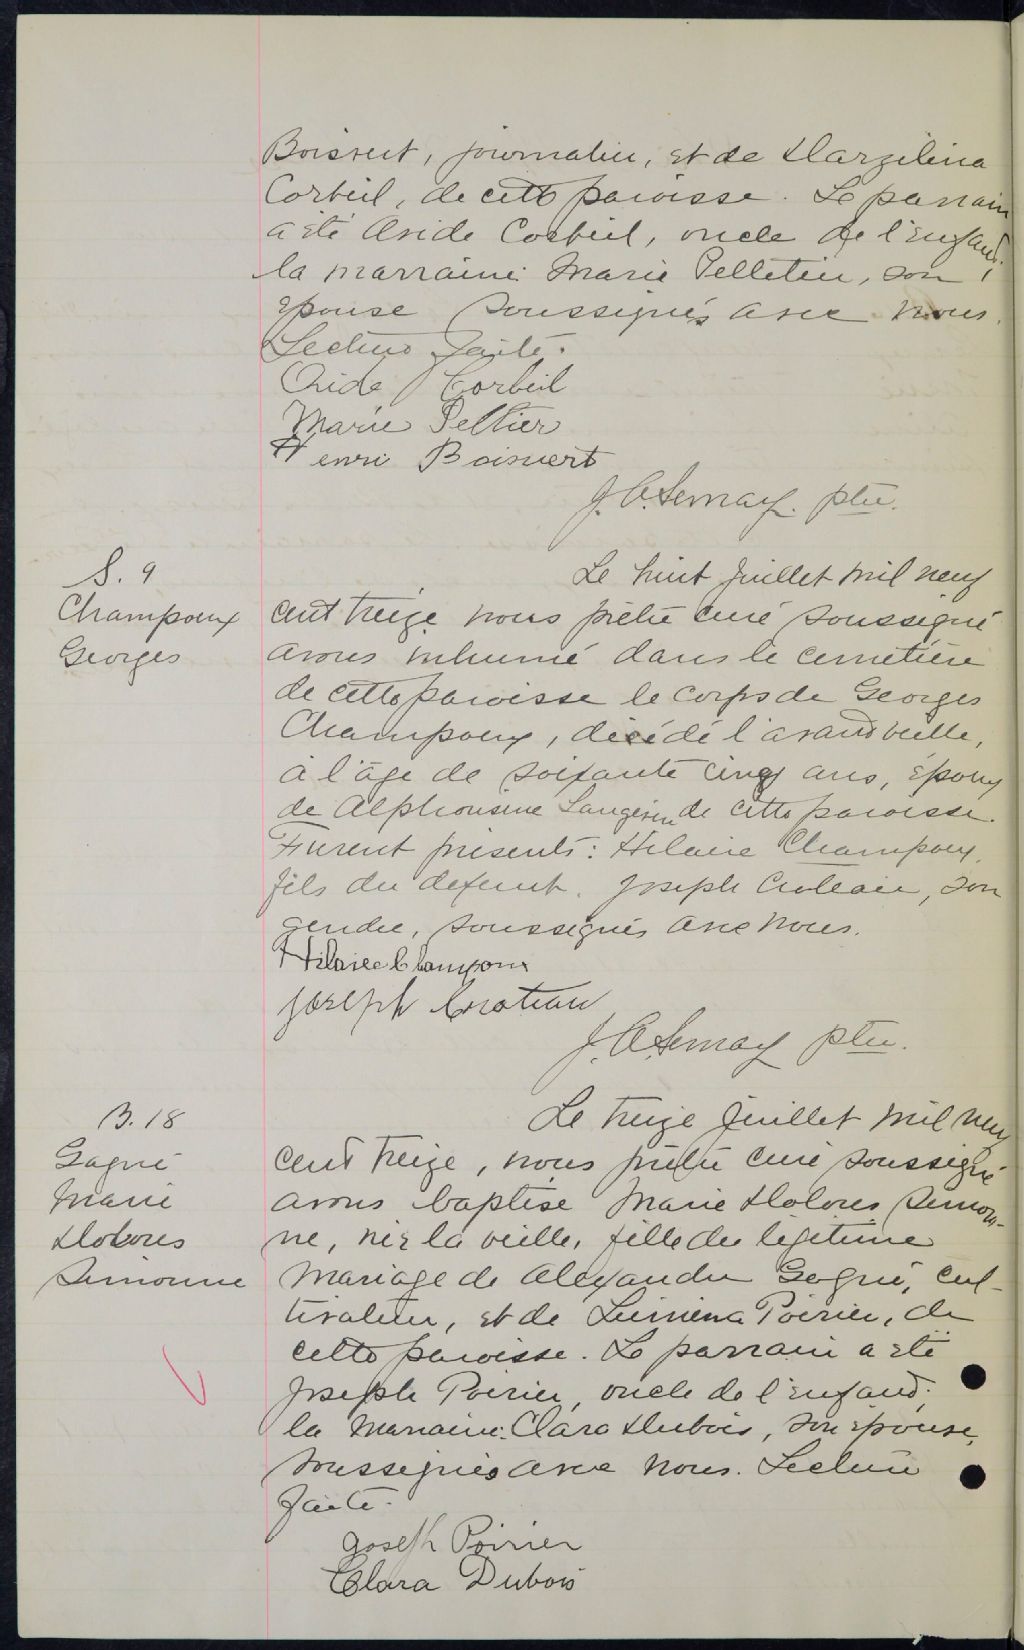 Boisvert, journalier, et de Marzilina
Corbeil, de cette paroisse. Le parrain
a été Ovide Corbeil, oncle de l'enfant;
la marraine: Marie Pelletier, son
épouse soussignés avec nous.
Lecture faite.
Ovide Corbeil
Marie Peltier
Henri Boisvert
J. O. Lemay. ptre.
S. 9
Champoux
Georges
Le huit juillet mil neuf
cent treize nous prêtre curé soussigné
avons inhumé dans le cimetière
de cette paroisse le corps de Georges
Champoux, décédé l'avant veille,
à l'âge de soixante cinq ans, époux
de Alphonsine Langevin de cette paroisse.
Furent présents: Hilaire Champoux,
fils du defunt. Joseph Croteau, son
gendre, soussignés avec nous.
Hilaire Champoux
Joseph Croteau
J. O. Lemay ptre.
B. 18
Gagné
Marie
Dolores
Simonne
Le treize juillet mil neuf
cent treize, nous prêtre curé soussigné
avons baptisé Marie Dolores Simon-
ne, née la veille, fille du légitime
mariage de Alexandre Gagné, cul-
tivateur, et de Poirier, de
cette paroisse. Le parrain a été
Joseph Poirier, oncle de l'enfant;
la marraine: Clara Dubois, son épouse,
soussignés avec nous. Lecture
faite.
Joseph Poirier
Clara Dubois